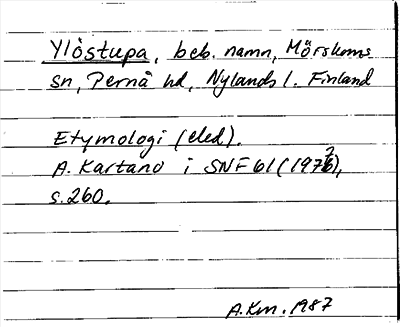 Ylöstupa, beb. namn, Mörskoms
sn, Pernå hd, Nylands l. Finland
Etymologi (eled).
A. Kartano i SNF 61 (1972),
s. 260.
A.Km. 1987